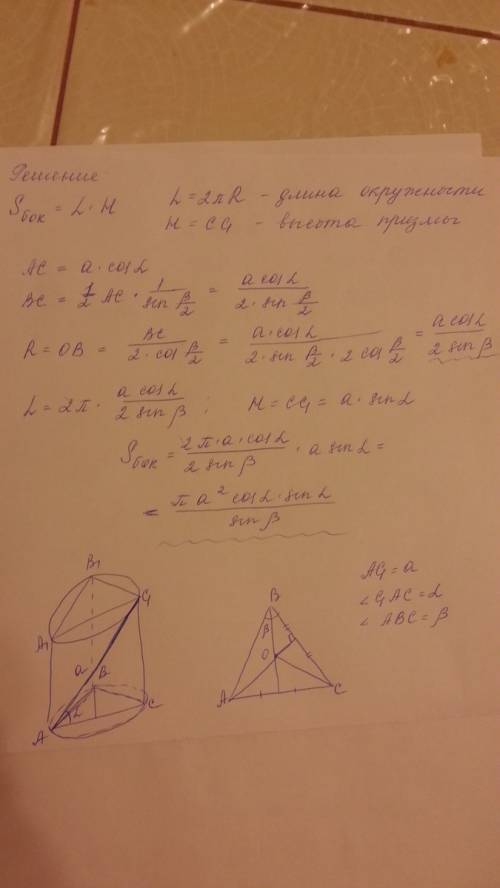 Решение
Sбок = L · H   L = 2πR – длина окружности
H = CC₁ – высота призмы
AC = a · cos α
BC = 1/2 AC · 1/(sin β/2) = (a cos α)/(2 · sin β/2)
R = OB = BC/(2 · cos β/2) = (a · cos α)/(2 · sin β/2 · 2 cos β/2) = (a cos α)/(2 sin β)
L = 2π · (a cos α)/(2 sin β) ;   H = CC₁ = a · sin α
Sбок = (2π · a · cos α)/(2 sin β) · a sin α =
= (π a² cos α · sin α)/(sin β)
B₁
C₁
A₁
a
B
α
C
A
B
β
O
A
C
AC₁ = a
∠C₁AC = α
∠ABC = β